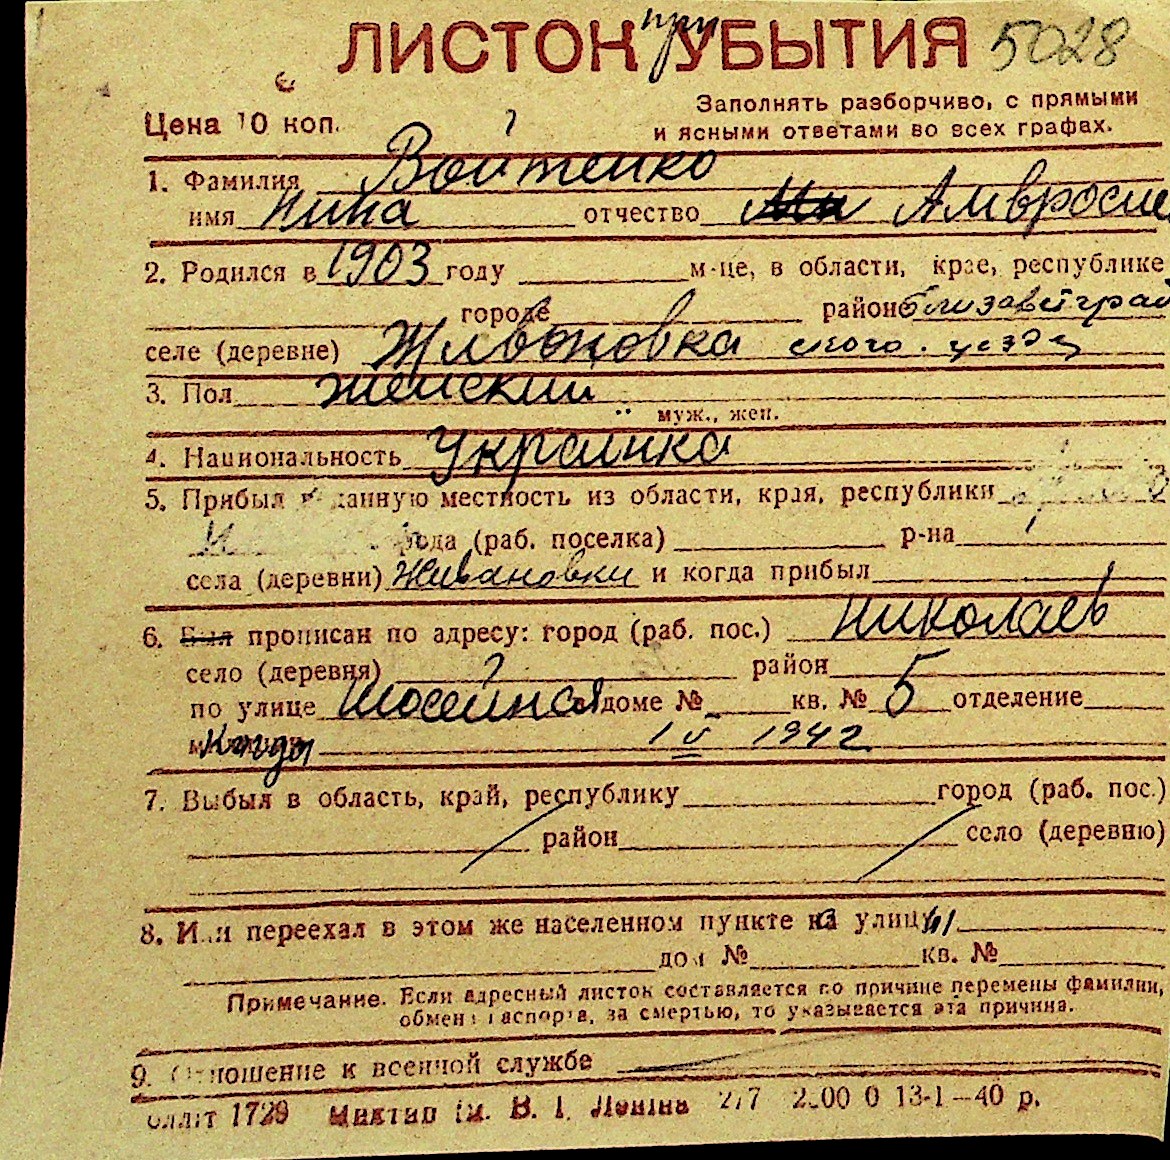 ЛИСТОК при УБЫТИЯ 5028
Заполнять разборчиво, с прямыми
Цена 10 коп. и ясными ответами во всех графах.
1. Фамилия Войтенко
имя Нина отчество Амвросие
2. Родился в 1903 году м-це, в области, крае, республике
городе районе Елизаветград
селе (деревне) Живановка ского уезда
3. Пол женский
муж., жен.
4. Национальность Українка
5. Прибыл в данную местность из области, края, республики
города (раб. поселка) р-на
села (деревни) Живановки и когда прибыл
6. Был прописан по адресу: город (раб. пос.) Николаев
село (деревня) район
по улице Шосейная доме № кв. № 5 отделение
Когда 1 V 1942
7. Выбыл в область, край, республику город (раб. пос.)
район село (деревню)
8. Или переехал в этом же населенном пункте на улицу
дом № кв. №
Примечание. Если адресный листок составляется по причине перемены фамилии,
обмен паспорта, за смертью, то указывается эта причина.
9. Отношение к военной службе
1729 В. І. Леніна 13-I-40 р.